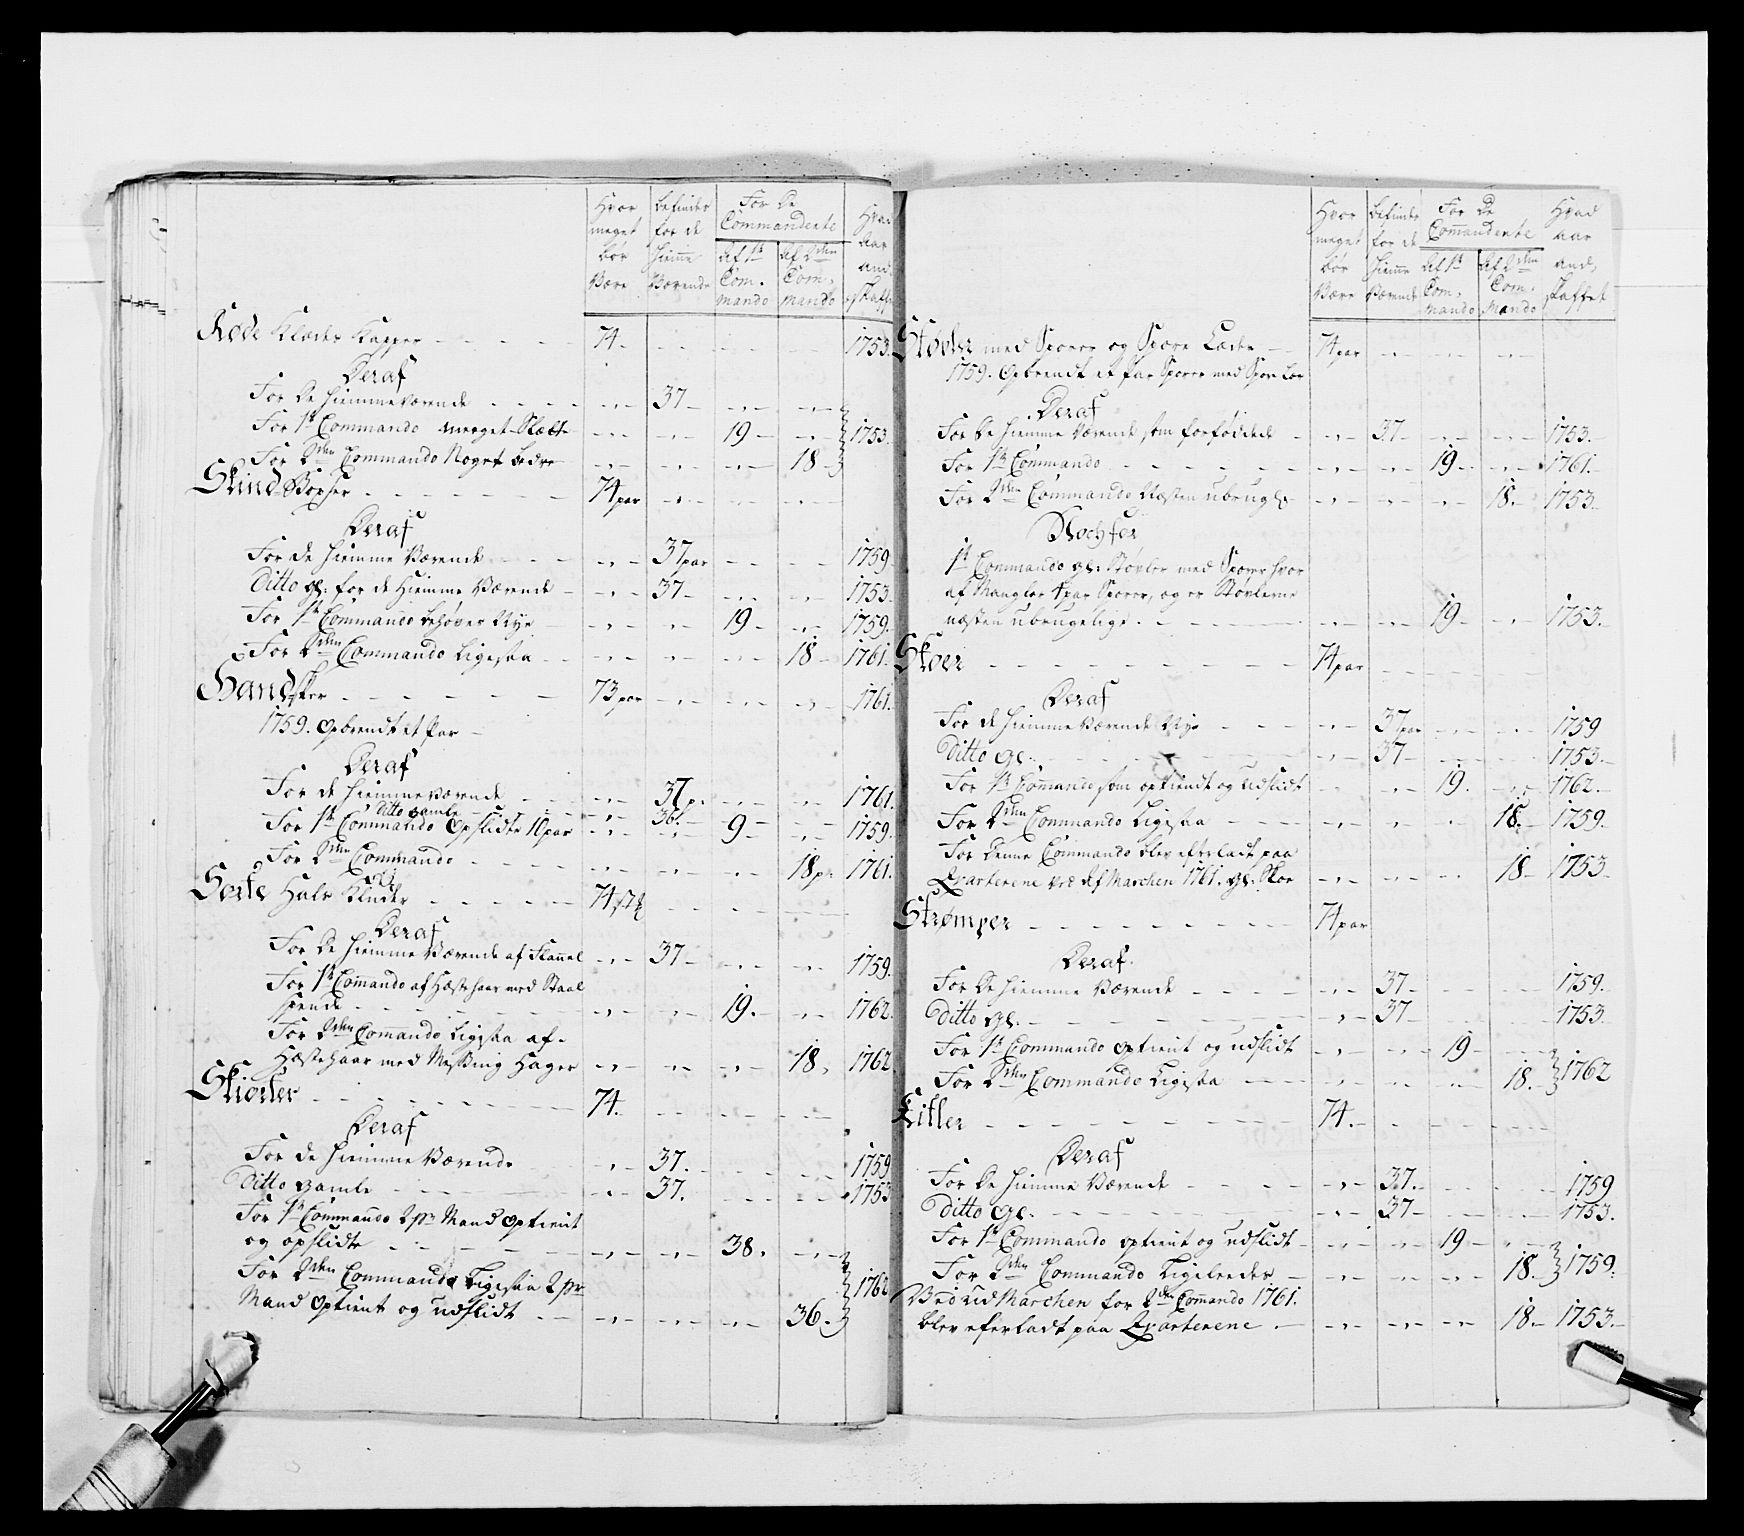 Hvor meget bør Være | befindes for de hiemme Værende | For De Commandente | Hvad Aar and, skaffet
Af 1st Com, mando | Af 2den Com, mando
Røde Klædes Kapper - - - - 74. - - - - 1753.
Deraf
For De hiemmeværende - - - - 37 - - -
For 1st Commando meeget Slætte - - - 19 - - 1753.
For 2den Commando Noget bedre - - - - 18
Skind Boxser - - - - - 74 par - - - -
Deraf
For de hiemme Værende - - - - 37 par - - 1759
Ditto gl: for de Hiemme Værende - - 37 - - - 1753.
For 1st Commando behøver Nye - - - 19 - - 1759.
For 2den Commando Ligesaa - - - - - 18 - 1761.
Handsker - - - - - 73 par - - - - 1761.
1759. Opbrendt et Par -
Deraf
For de hiemmeværende - - - 37 p. - - - 1761.
Ditto gamle - - - 36.
For 1st Commando Opslidte 10 par - - - 9 - - 1759.
For 2den Commando - - - - - 18 p. 1761.
Sorte Hals Kluder - - - - - 74 stk - - - -
Deraf
For De hiemme Værende af Flannel - - 37 - - - 1759.
For 1st Commando af Hæstehaar med Staal
spende - - - - - 19. - - 1762
For 2den Commando Ligesaa af
Hæstehaar med Messing Hager - - - - 18, 1762
Skiorter - - - - - 74. - - - -
Deraf
For de hiemme Værende - - 37. - - 1759
Ditto gamle - - - - - 37. - - 1753
For 1st Commando 2 pr Mand Optient
og opslidte - - - - - 38. - -
For 2den Commando Ligesaa 2 pr
Mand Optient og udslidt - - - - - 36. 1762
Hvor meget bør Være | befindes for de hiemme Værende | For De Commandente | Hvad aar and, skaffet
Af 1st Com, mando | Af 2den Com, mando
Støvler med Sporer og Spore Læder - - 74 par - - - -
1759. Opbrendt et par Sporer med Spor Lær
Deraf
For De hiemme Værende som forføddede - - 37 - - - 1753.
For 1st Commando - - - - - 19 - - 1761.
For 2den Commando Næsten ubrugl: - - - - 18. 1753.
1st Commando gl: Støvler med Sporer hvor
af Mangler 4 par Sporer, og er Støvlerne
næsten ubrugelige. - - - - - 19 - - 1753.
Skoer - - - - - 74 par - - - -
Deraf
For de hiemme Værende Nye - - - - 37 par - - 1759
Ditto gl. - - - - - 37 - - - 1753.
For 1st Commando som optiendt og udslidt - - - 19. - - 1762.
For 2den Commando Ligesaa - - - - - 18. 1759.
For Denne Commando blev efterladt paa
Qvarterene ved Af Marchen 1761. gl: Skoe - - - - 18 - 1753.
Strømper - - - - - 74 par
Deraf
For De hiemme Værende - - - - 37 - - - 1759.
Ditto gl. - - - - - 37 - - - 1753
For 1st Commando optient og udslidt - - - 19 - -
For 2den Commando Ligesaa - - - - - 18. 1762
Kitler - - - - - 74. - - - -
Deraf
For De hiemme Værende - - - - 37. - - - 1759
Ditto gl. - - - - - 37 - - - 1753.
For 1st Commando optient og udslidt - - - 19 - -
For 2den Commando Ligeleedes - - - - 18. 1759.
Ved Ud Marchen for 2den Commando 1761.
blev efterladt paa Qvarterene. - - - - 18. - 1753.